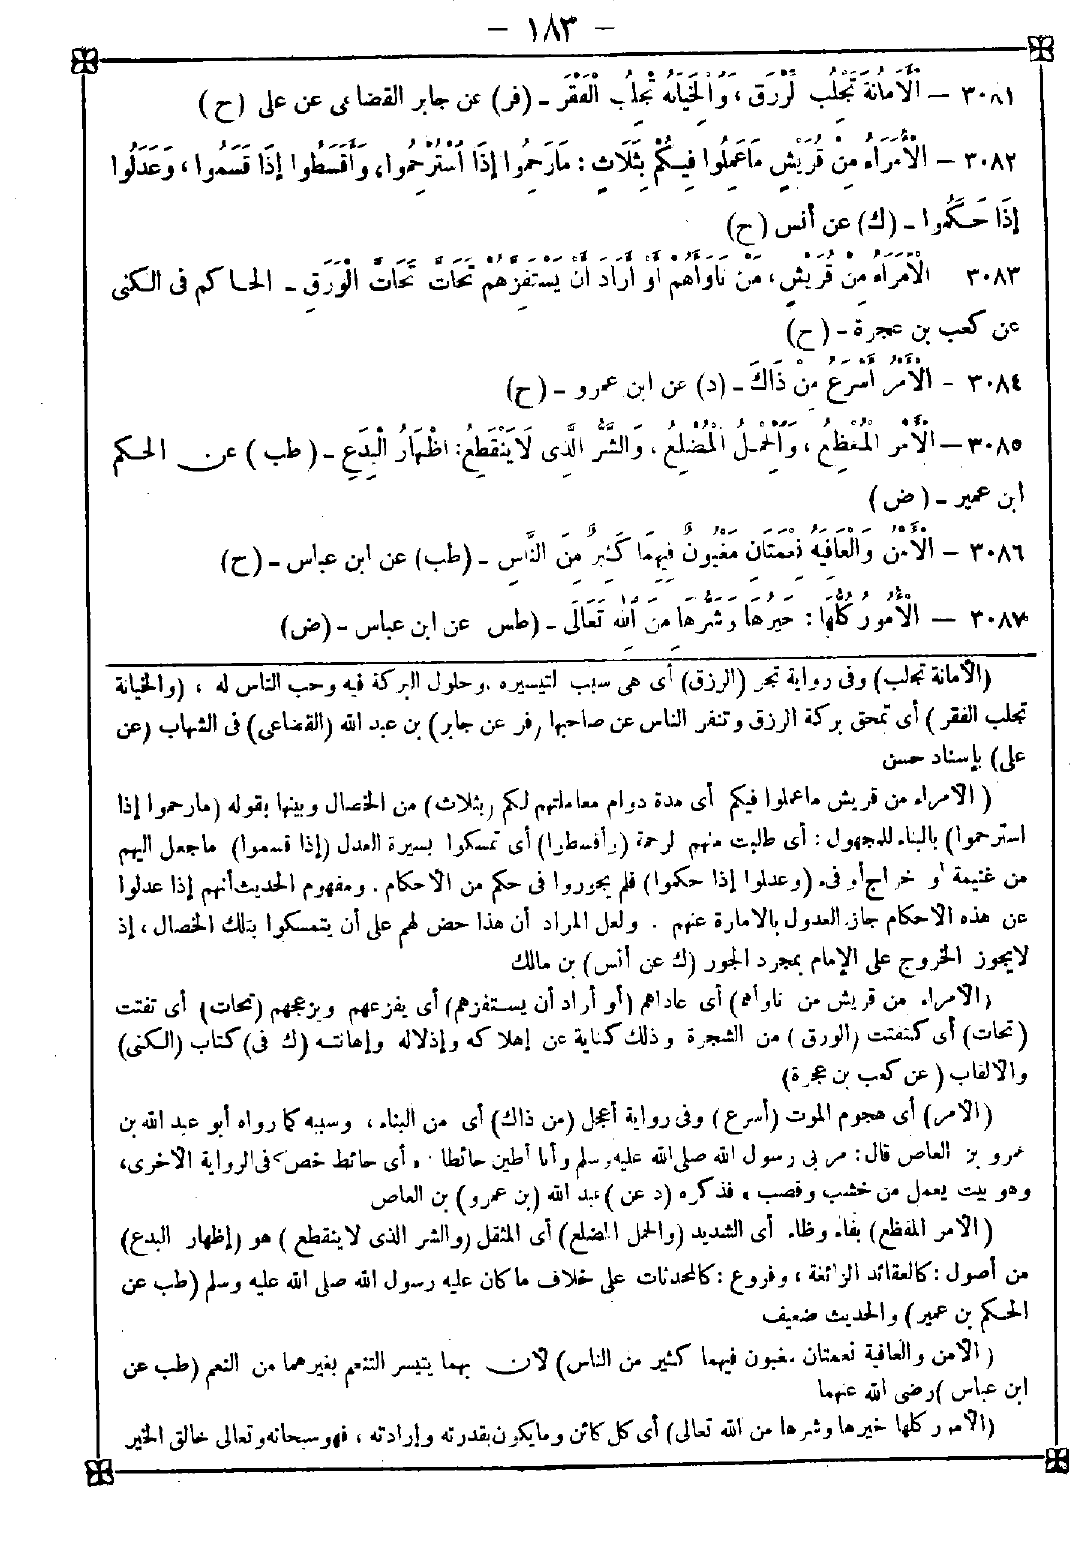 - ١٨٣ -
٣٠٨١ - الْأَمَانَةُ تَجْلِبُ الرِّزْقَ ، وَالْخِيَانَةُ تَجْلِبُ الْفَقْرَ - (فر) عن جابر القضاعى عن على (ح)
٣٠٨٢ - الْأُمَرَاءُ مِنْ قُرَيْشٍ مَاعَمِلُوا فِيكُمْ بِثَلَاثٍ : مَارَحِمُوا إِذَا اسْتُرْحِمُوا، وَأَقْسَطُوا إِذَا قَسَمُوا ، وَعَدَلُوا
إِذَا حَكَمُوا - (ك) عن أنس (ح)
٣٠٨٣ الْأُمَرَاءُ مِنْ قُرَيْشٍ ، مَنْ نَاوَأَهُمْ أَوْ أَرَادَ أَنْ يَسْتَفِزَّهُمْ تَحَاتَّ تَحَاتَّ الْوَرَقِ - الحاكم فى الكنى
عن كعب بن عجرة - (ح)
٣٠٨٤ - الْأَمْرُ أَسْرَعُ مِنْ ذَاكَ - (د) عن ابن عمرو - (ح)
٣٠٨٥ - الْأَمْرُ الْمُفْظِعُ ، وَالْحِمْلُ الْمُضْلِعُ ، وَالشَّرُّ الَّذِى لَايَنْقَطِعُ : إِظْهَارُ الْبِدَعِ - (طب) عن الحكم
ابن عمير - (ض)
٣٠٨٦ - الْأَمْنُ وَالْعَافِيَةُ نِعْمَتَانِ مَغْبُونٌ فِيهِمَا كَثِيرٌ مِنَ النَّاسِ - (طب) عن ابن عباس - (ح)
٣٠٨٧ - الْأُمُورُ كُلُّهَا : خَيْرُهَا وَشَرُّهَا مِنَ اللهِ تَعَالَى - (طس عن ابن عباس - (ض)
(الأمانة تجلب) وفى رواية تجر (الرزق) أى هى سبب لتيسيره وحلول البركة فيه وحب الناس له ، (والخيانة
تجلب الفقر) أى تمحق بركة الرزق وتنفر الناس عن صاحبها (فر عن جابر) بن عبد الله (القضاعى) فى الشهاب (عن
على) بإسناد حسن
(الأمراء من قريش ماعملوا فيكم أى مدة دوام معاملتهم لكم (بثلاث) من الخصال وبينها بقوله (مارحموا إذا
استرحموا) بالبناء للمجهول : أى طالبت منهم لرحمة (وأقسطوا) أى تمسكوا بسيرة العدل (إذا قسموا) ماجعل اليهم
من غنيمة أو خراج أو فىء (وعدلوا إذا حكموا) فلم يجوروا فى حكم من الاحكام . ومفهوم الحديث أنهم إذا عدلوا
عن هذه الاحكام جاز العدول بالامارة عنهم . ولعل المراد أن هذا حض لهم على أن يتمسكوا بتلك الخصال ، إذ
لايجوز الخروج على الإمام بمجرد الجور (ك عن أنس) بن مالك
(الأمراء من قريش من ناوأهم) أى عاداهم (أو أراد أن يستفزهم) أى يفزعهم ويزعجهم (تحات) أى تفتت
(تحات) أى كتفتت (الورق) من الشجرة وذلك كناية عن إهلاكه وإذلاله وإهانته (ك فى) كتاب (الكنى)
والالقاب (عن كعب بن عجرة)
(الأمر) أى هجوم الموت (أسرع) وفى رواية أعجل (من ذاك) أى من البناء ، وسببه كما رواه أبو عبد الله بن
عمرو بن العاص قال : مر بى رسول الله صلى الله عليه وسلم وأنا أطين حائطا ، أى حائط خص كفى الرواية الأخرى،
وهو بيت يعمل من خشب وقصب ، فذكره (د عن) عبد الله (بن عمرو) بن العاص
(الأمر المفظع) بفاء وظاء أى الشديد (والحمل المضلع) أى المثقل (والشر الذى لاينقطع) هو (إظهار البدع)
من أصول : كالعقائد الزائغة ، وفروع : كالمحدثات على خلاف ماكان عليه رسول الله صلى الله عليه وسلم (طب عن
الحكم بن عمير) والحديث ضعيف
(الأمن والعافية نعمتان مغبون فيهما كثير من الناس) لأن بهما يتيسر التنعم بغيرهما من النعم (طب عن
ابن عباس) رضى الله عنهما
(الأمور كلها خيرها وشرها من الله تعالى) أى كل كائن ومايكون بقدرته وإرادته ، فهو سبحانه وتعالى خالق الخير